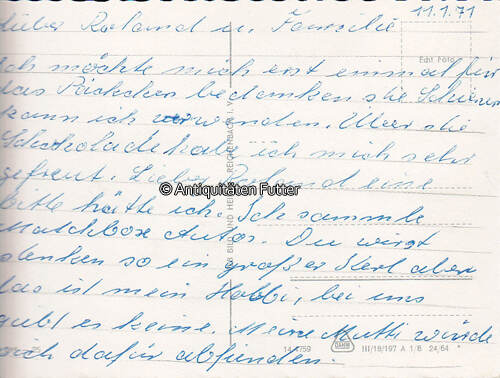 11.1.71
Lieber Roland u. Familie
Echt Foto
Ich möchte mich erst einmal für
das Päckchen bedanken die Schienen
kann ich verwenden. Über die
Schokolade habe ich mich sehr
gefreut. Lieber Roland eine
© Antiquitäten Futter
bitte hätte ich. Ich sammle
Matchbox Autos. Du wirst
denken so ein großer Kerl aber
das ist mein Hobbi, bei uns
gibt es keine. Meine Mutti würde
dich dafür abfinden.
BILD UND HEIMAT REICHENBACH I. V.
14-1759
III/18/197 A 1/6 24/64